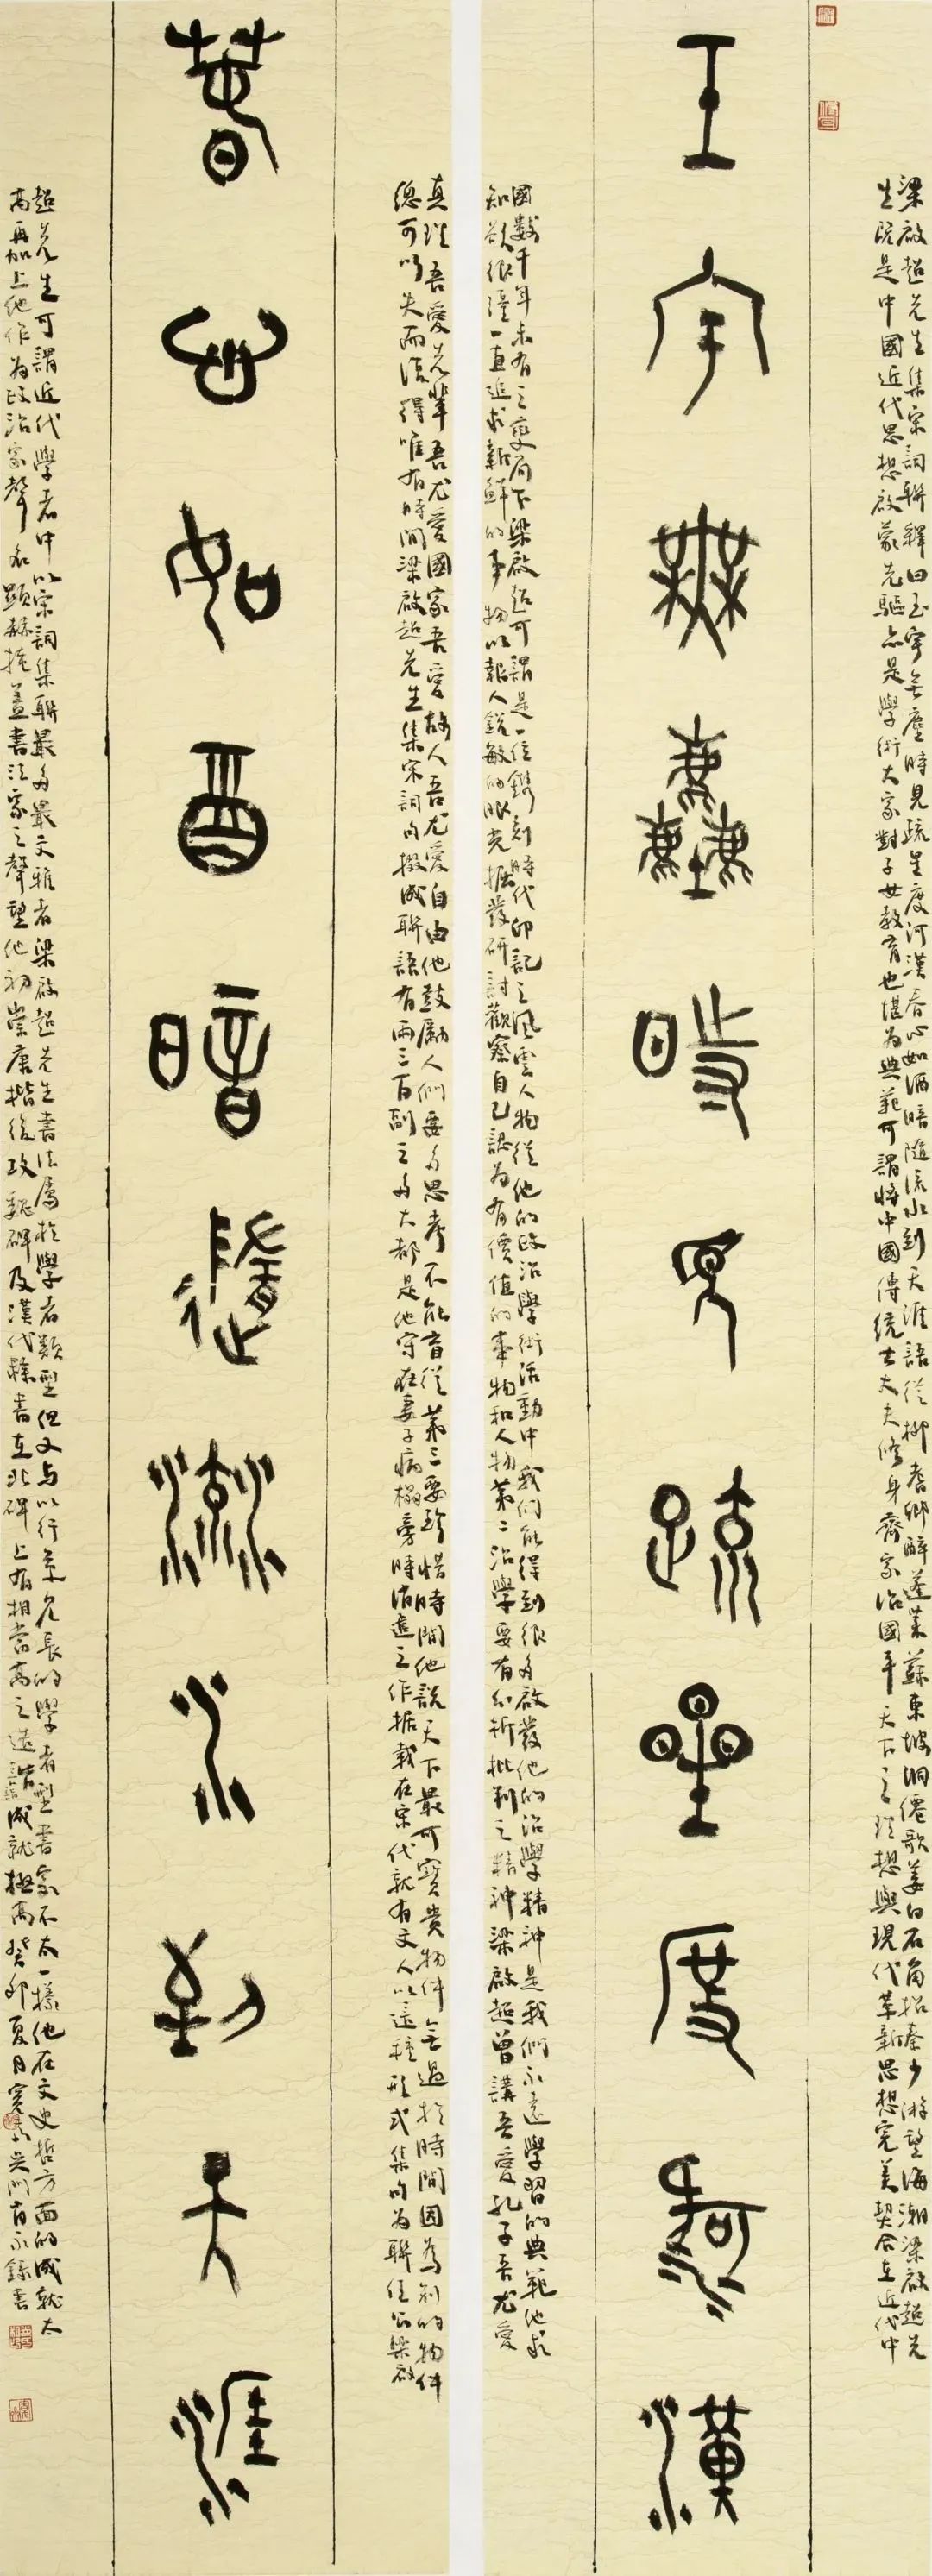 玉宇無塵時見疏星度河漢
梁啟超先生集宋詞聯釋曰玉宇無塵時見疏星度河漢春心如酒暗隨流水到天涯語從柳耆卿醉蓬萊蘇東坡洞僊歌姜白石角招秦少游望海潮梁啟超先
生既是中國近代思想啟蒙先驅亦是學術大家對子女教育也堪為典範可謂將中國傳統士大夫修身齊家治國平天下之理想與現代革新思想完美契合在近代中
國數千年未有之變局下梁啟超可謂是一位鐫刻時代印記之風雲人物從他的政治學術活動中我們能得到很多啟發他的治學精神是我們永遠學習的典範他求
知欲很強一直追求新鮮的事物以報人銳敏的眼光掘發研討觀察自己認為有價值的事物和人物第二治學要有分析批判之精神梁啟超曾講吾愛孔子吾尤愛
春心如酒暗隨流水到天涯
真理吾愛先輩吾尤愛國家吾愛故人吾尤愛自由他鼓勵人們要多思考不能盲從第三要珍惜時間他說天下最可寶貴物件無過於時間因為別的物件
總可以失而復得唯有時間梁啟超先生集宋詞句掇成聯語有兩三百副之多大都是他守在妻子病榻旁時消遣之作據載在宋代就有文人以這種形式集句為聯任公梁啟
超先生可謂近代學者中以宋詞集聯最多最文雅者梁啟超先生書法屬於學者類型但又與以行草見長的學者型書家不太一樣他在文史哲方面的成就太
高再加上他作為政治家聲名顯赫掩蓋書法家之聲望他初崇唐楷後攻魏碑及漢代隸書在北碑上有相當高之造詣成就極高癸卯夏月吳門永錄書